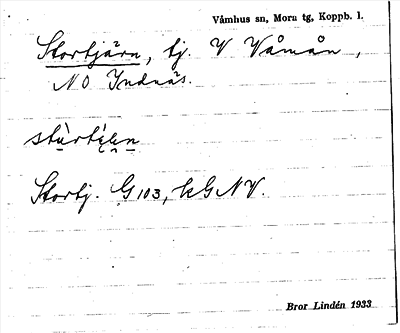 Våmhus sn, Mora tg, Koppb. l.
Stortjärn, tj. V Våmån,
NO Indnäs.
stùrtḙ́ḙn
Stortj. G 103, kGNV.
Bror Lindén 1933